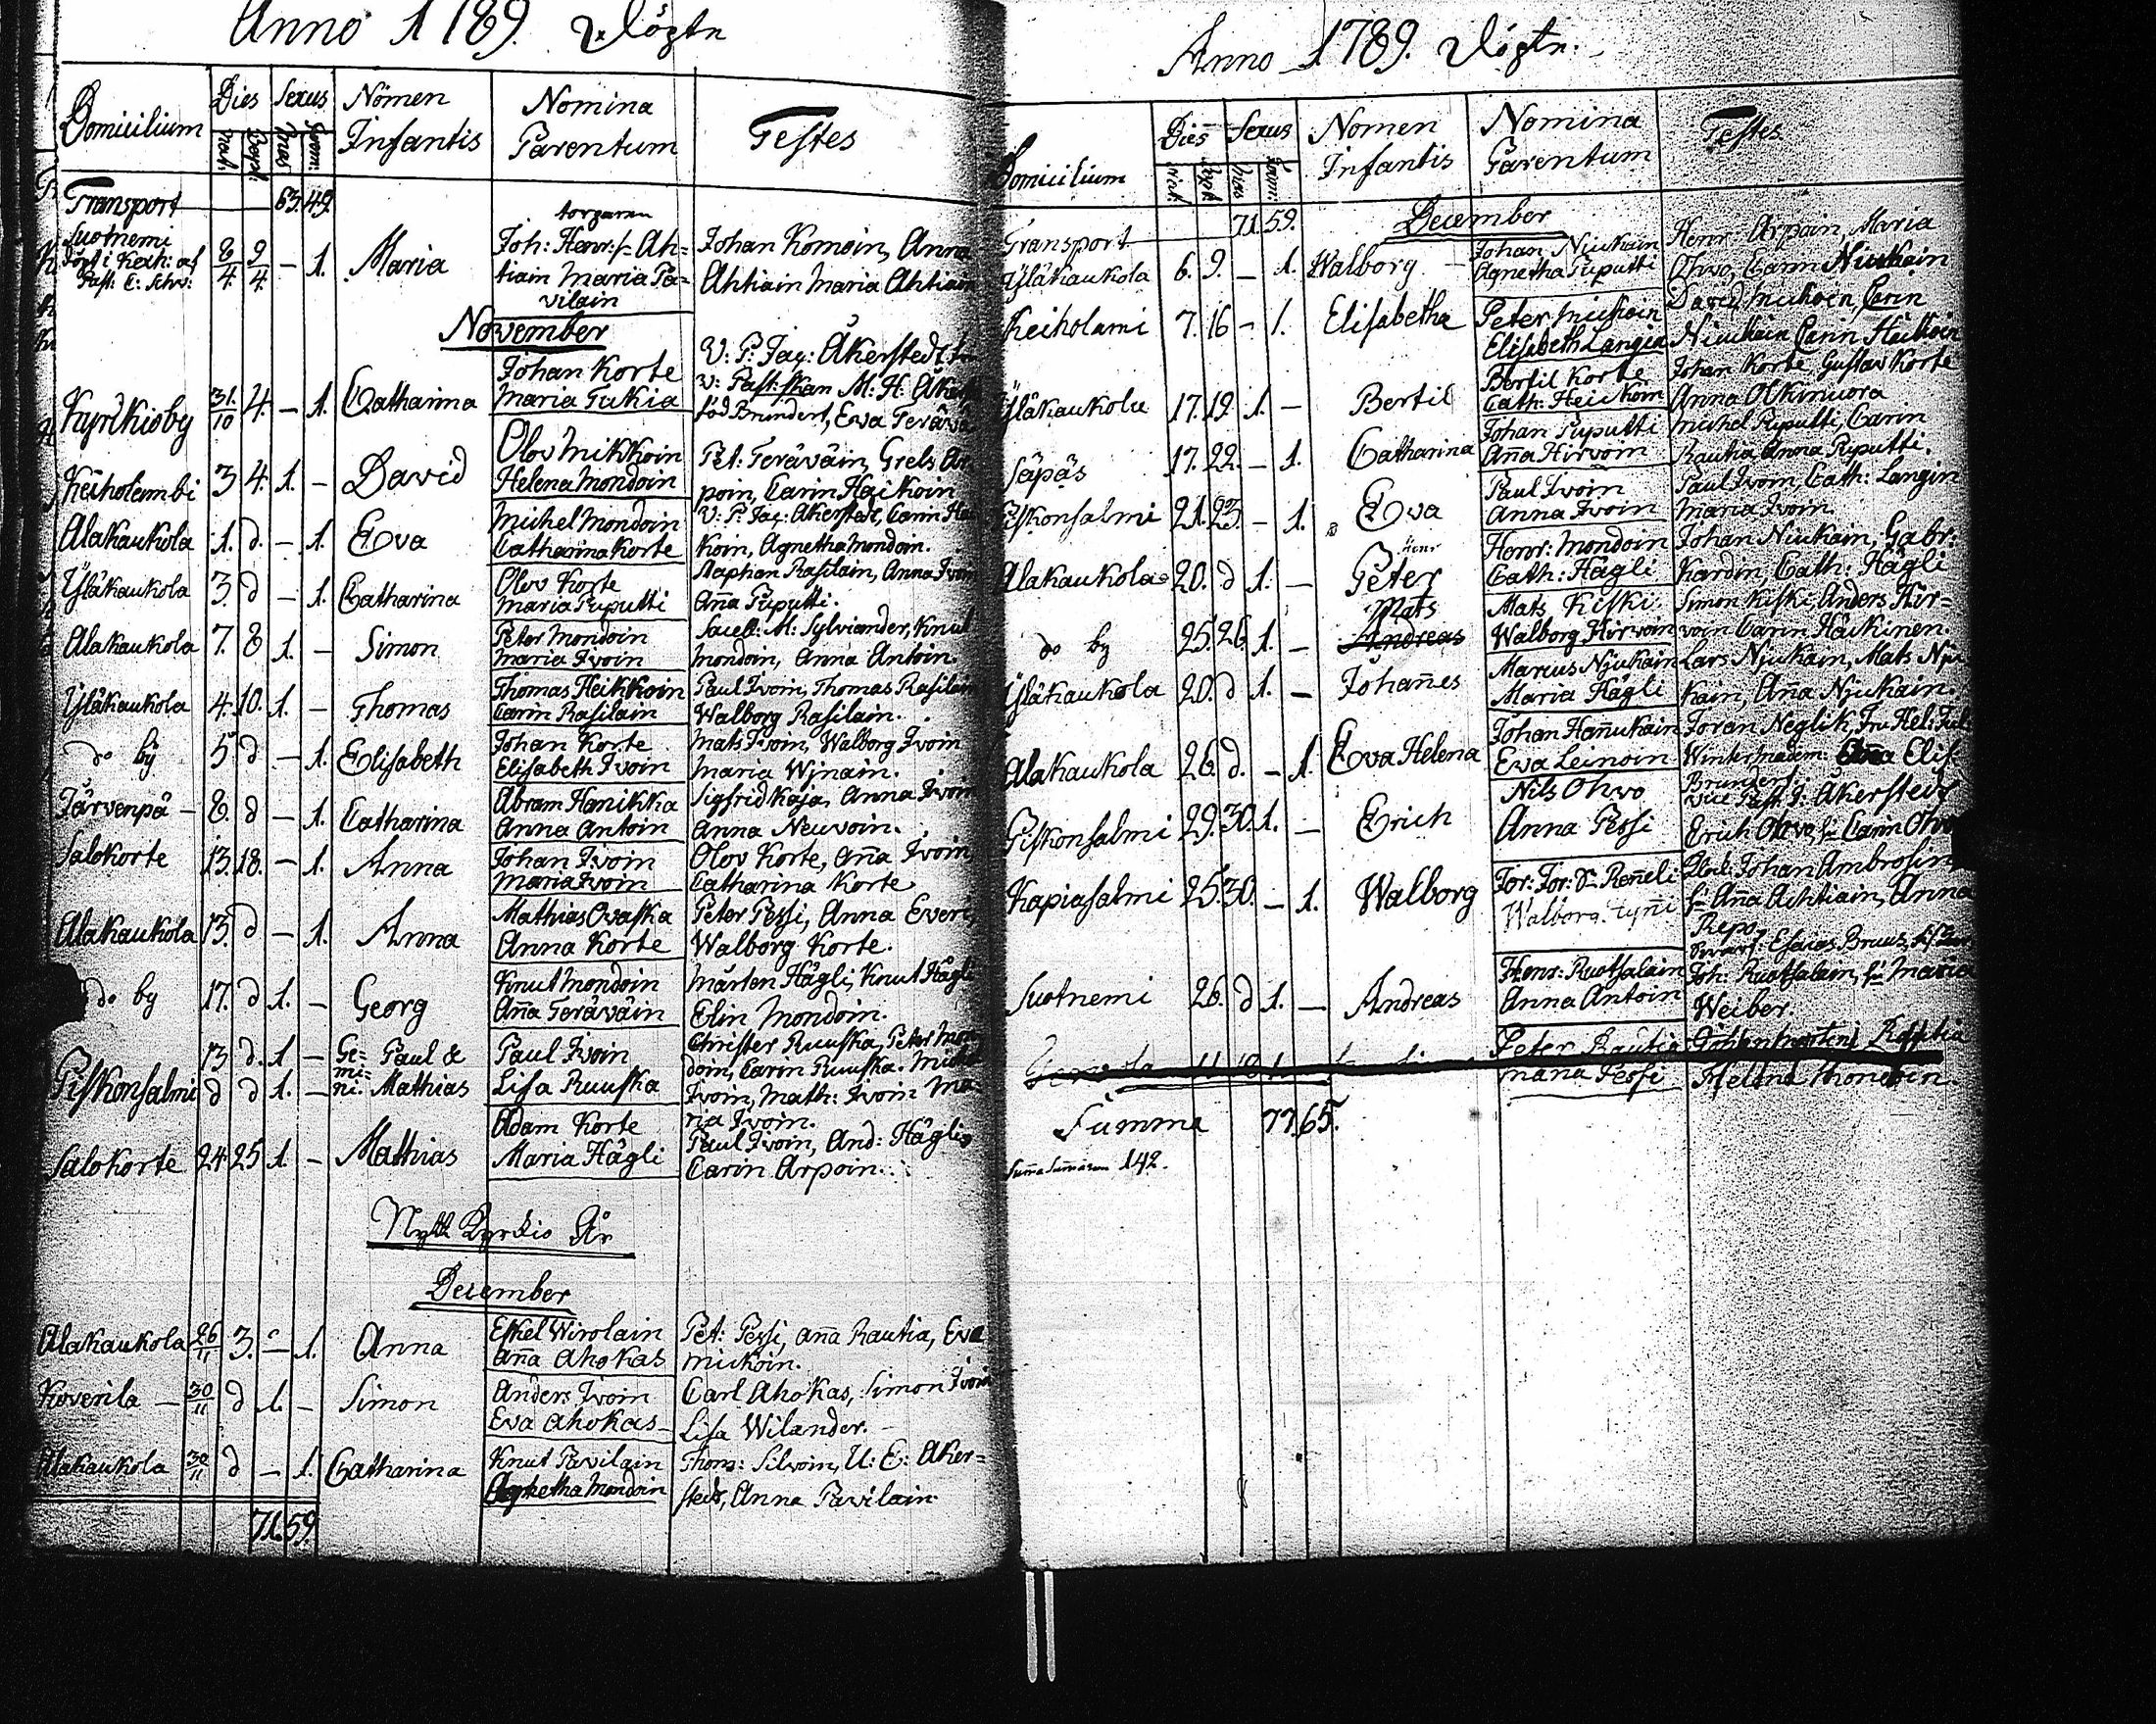 Anno 1789. Döptn
Domicilium Dies Sexus Nomen Infantis Nomina Parentum Testes
Nat: Bapt: Mas Foem:
Transport 63. 49.
Suotnemi
döpt i Kexh: af
Past: C: Schv:
8/4 9/4 – 1. Maria
torparen
Joh: Henr: s: Ah=
tiain Maria Pa=
vilain
Johan Komoin, Anna
Ahtiain Maria Ahtiain
November
Kyrkioby 31./10 4. – 1. Catharina
Johan Korte
Maria Tukia
V: P: Jac: Åkerstedt
v: Past: skan M. H. Åker
född Brundert, Eva Teräva
Keiholambi 3 4. 1. – David
Olov Mikkoin
Helena Mondoin
Pet: Teräväin, Grels Ar
poin, Carin Heikoin
Alakaukola 1. d. – 1. Eva
Michel Mondoin
Catharina Korte
V: P: Jac: Åkerstedt, Carin Hei
koin, Agnetha Mondoin.
Yläkaukola 3. d – 1. Catharina
Olov Korte
Maria Puputti
Staphan Rasilain, Anna Ivoin
Aña Puputti.
Alakaukola 7. 8 1. – Simon
Peter Mondoin
Maria Ivoin
Sacell: M: Sylviander, Knut
Mondoin, Anna Antoin.
Yläkaukola 4. 10. 1. – Thomas
Thomas Heikkoin
Carin Rasilain
Paul Ivoin, Thomas Rasilain
Walborg Rasilain.
do by 5 d – 1. Elisabeth
Johan Korte
Elisabeth Ivoin
Mats Ivoin, Walborg Ivoin
Maria Wjnain.
Järvenpä – 8. d – 1. Catharina
Abram Hanikka
Anna Antoin
Sigfrid Kaja, Anna Ivoin
Anna Neuvoin.
Salokorte 13. 18. – 1. Anna
Johan Ivoin
Maria Ivoin
Olov Korte, Aña Ivoin
Catharina Korte
Alakaukola 13. d – 1. Anna
Mathias Ovaska
Anna Korte
Peter Pessi, Anna Everi
Walborg Korte.
do by 17. d 1. – Georg
Knut Mondoin
Aña Teräväin
Mårten Hägli, Knut Hägli
Elin Mondoin.
Piskonsalmi 13 d. 1 – Ge= Paul &
d d 1. – mi= ni. Mathias
Paul Ivoin
Lisa Ruuska
Christer Ruuska, Peter Mon
doin, Carin Ruuska. Michel
Ivoin, Math: Ivoin Ma
ria Ivoin.
Salokorte 24. 25 1. – Mathias
Adam Korte
Maria Hägli
Paul Ivoin, And: Hägli,
Carin Arpoin.
Nytt Kyrkio År
December
Alakaukola 26/11 3. – 1. Anna
Eskel Wirolain
Aña Ahokas
Pet: Pessi, Aña Rautia, Eva
Mickoin.
Koverila – 30/11 d 1. – Simon
Anders Ivoin
Eva Ahokas
Carl Ahokas, Simon Ivoin
Lisa Wilander.
Alakaukola 30/11 d – 1. Catharina
Knut Pavilain
Agnetha Mondoin
Thom: Silvoin, U: E: Åker=
stedt, Anna Pavilain
71. 59
Anno 1789. Döptn.
Domicilium Dies Sexus Nomen Infantis Nomina Parentum Testes
Nat: Bapt: Mas Foem:
Transport 71. 59. December
Yläkaukola 6. 9. – 1. Walborg
Johan Niukain
Agnetha Puputti
Henr: Arpain, Maria
Ohvo, Carin Niukain
Keiholami 7. 16 – 1. Elisabetha
Peter Mickoin
Elisabeth Langin
David Mickoin, Carin
Niukain Carin Heickoin
Yläkaukola 17. 19. 1. – Bertil
Bertil Korte
Cath: Heickoin
Johan Korte Gustav Korte
Anna Olkinuora
Säpäs 17. 22. – 1. Catharina
Johan Puputti
Aña Hirvoin
Michel Puputti, Carin
Rautia Anna Puputti.
Piskonsalmi 21. 23. – 1. Eva
Paul Ivoin
Anna Ivoin
Paul Ivoin, Cath: Langin
Maria Ivoin.
Alakaukola 20. d 1. – Henr Peter
Henr: Mondoin
Cath: Hägli
Johan Niukain, Gabr:
Kardin, Cath: Hägli
do by 25. 26 1. – Mats
Andreas
Mats Kiski.
Walborg Hirvoin
Simon Kiski, Anders Hir=
voin Carin Häckinen.
Yläkaukola 20. d 1. – Johañes
Marcus Njukain
Maria Hägli
Lars Njukain, Mats Nju
kain, Aña Njukain.
Alakaukola 26. d. – 1. Eva Helena
Johan Hañukain
Eva Leinoin
Joran Neglik, Fru Hel: Jul:
Winter Madem: Elis
Brundert.
Piskonsalmi 29. 30. 1. – Erich
Nils Ohvo
Anna Pessi
vice Past: J: Åkerstedt
Erich Ohvo, Carin Ohvo
Kapiasalmi 25. 30. – 1. Walborg
Jör: Jör: Sn Reñeli
Walborg Tyñi
Klock: Johan Ambrosius
Aña Achtiain, Anna
Repo
Suotnemi 26. d 1. – Andreas
Henr: Ruotsalain
Anna Antoin
Esaias Bruus,
Joh: Ruotsalain, Maria
Weiber.
Peter Rautia
Maria Pessi
Rautia
Helena Mondoin
Summa 77. 65.
Suma Sumarum 142.